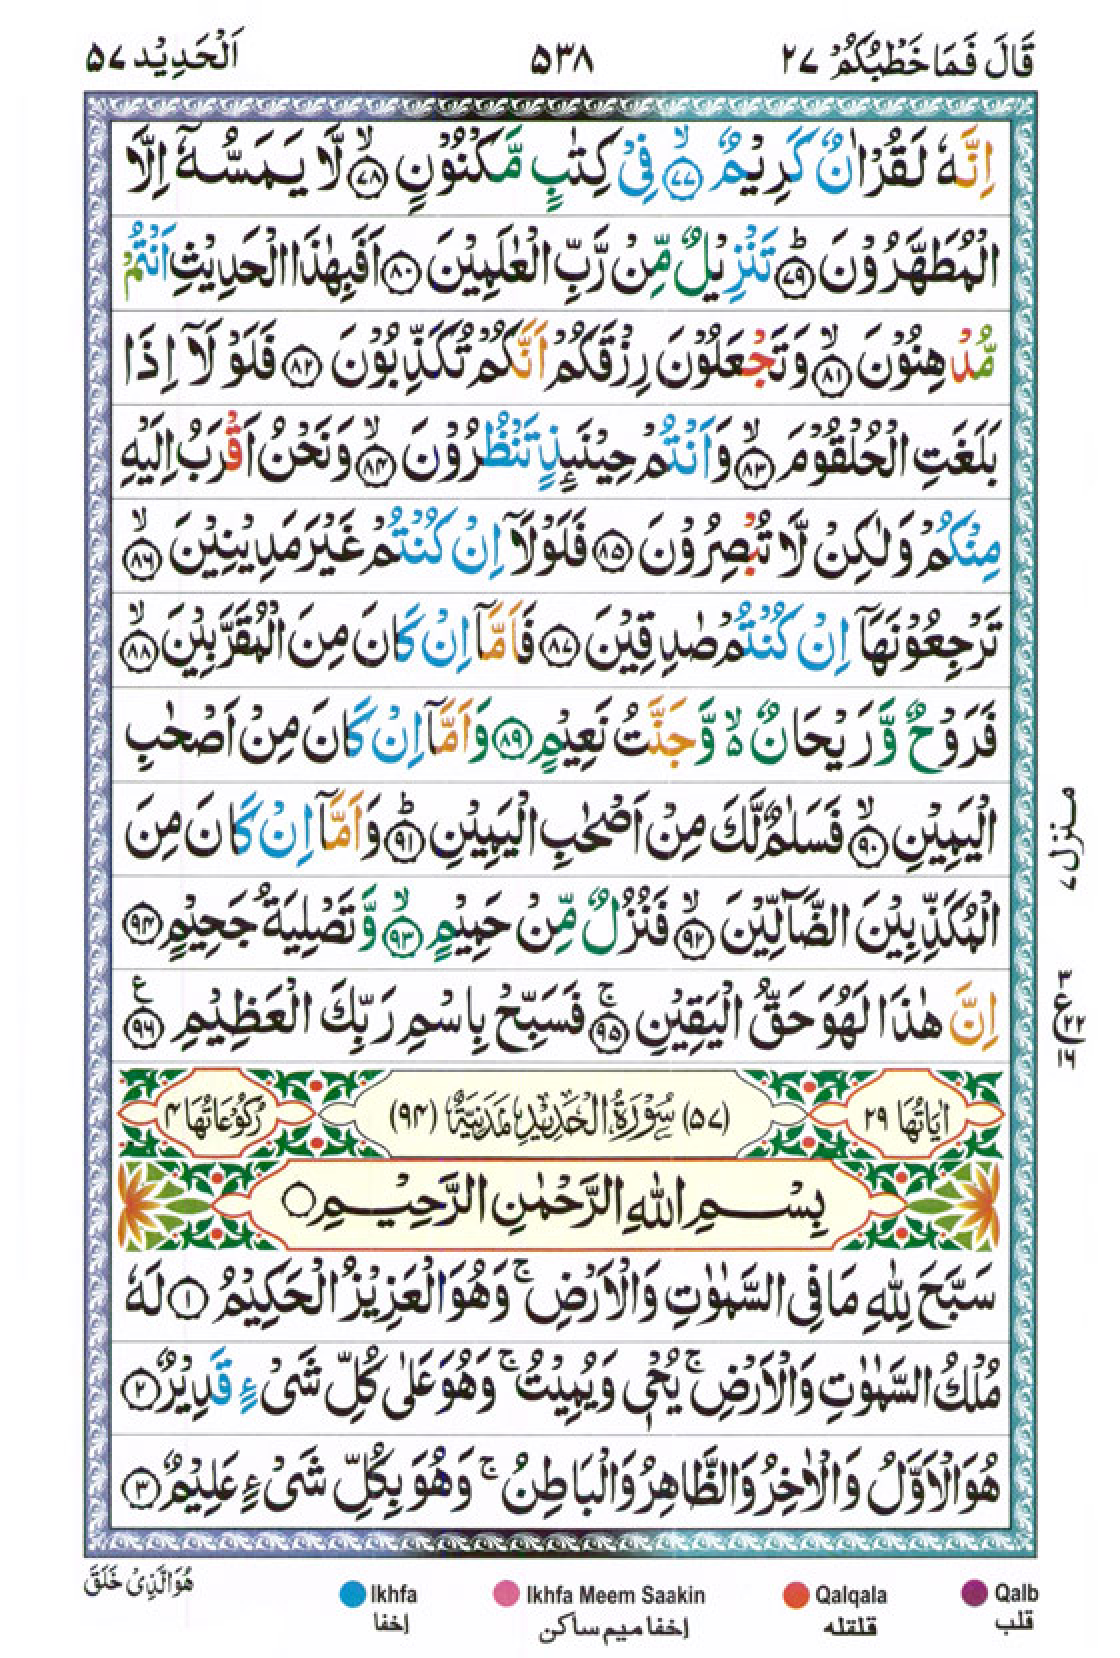 قَالَ فَمَا خَطْبُكُمْ ٢٧
٥٣٨
اَلْحَدِيْد ٥٧
اِنَّهٗ لَقُرْاٰنٌ كَرِيْمٌ ۙ﴿٧٧﴾ فِيْ كِتٰبٍ مَّكْنُوْنٍ ۙ﴿٧٨﴾ لَّا يَمَسُّهٗۤ اِلَّا
الْمُطَهَّرُوْنَ ؕ﴿٧٩﴾ تَنْزِيْلٌ مِّنْ رَّبِّ الْعٰلَمِيْنَ ﴿٨٠﴾ اَفَبِهٰذَا الْحَدِيْثِ اَنْتُمْ
مُّدْهِنُوْنَ ۙ﴿٨١﴾ وَتَجْعَلُوْنَ رِزْقَكُمْ اَنَّكُمْ تُكَذِّبُوْنَ ﴿٨٢﴾ فَلَوْلَاۤ اِذَا
بَلَغَتِ الْحُلْقُوْمَ ۙ﴿٨٣﴾ وَاَنْتُمْ حِيْنَىِٕذٍ تَنْظُرُوْنَ ۙ﴿٨٤﴾ وَنَحْنُ اَقْرَبُ اِلَيْهِ
مِنْكُمْ وَلٰكِنْ لَّا تُبْصِرُوْنَ ﴿٨٥﴾ فَلَوْلَاۤ اِنْ كُنْتُمْ غَيْرَ مَدِيْنِيْنَ ۙ﴿٨٦﴾
تَرْجِعُوْنَهَاۤ اِنْ كُنْتُمْ صٰدِقِيْنَ ﴿٨٧﴾ فَاَمَّاۤ اِنْ كَانَ مِنَ الْمُقَرَّبِيْنَ ۙ﴿٨٨﴾
فَرَوْحٌ وَّرَيْحَانٌ ۙ۬ وَّجَنَّتُ نَعِيْمٍ ﴿٨٩﴾ وَاَمَّاۤ اِنْ كَانَ مِنْ اَصْحٰبِ
الْيَمِيْنِ ۙ﴿٩٠﴾ فَسَلٰمٌ لَّكَ مِنْ اَصْحٰبِ الْيَمِيْنِ ؕ﴿٩١﴾ وَاَمَّاۤ اِنْ كَانَ مِنَ
الْمُكَذِّبِيْنَ الضَّآلِّيْنَ ۙ﴿٩٢﴾ فَنُزُلٌ مِّنْ حَمِيْمٍ ۙ﴿٩٣﴾ وَّتَصْلِيَةُ جَحِيْمٍ ﴿٩٤﴾
اِنَّ هٰذَا لَهُوَ حَقُّ الْيَقِيْنِ ۚ﴿٩٥﴾ فَسَبِّحْ بِاسْمِ رَبِّكَ الْعَظِيْمِ ﴿٩٦﴾ ع
اٰيَاتُهَا ٢٩
(٥٧) سُوْرَةُ الْحَدِيْدِ مَدَنِيَّةٌ (٩٤)
رُكُوْعَاتُهَا ٤
بِسْمِ اللّٰهِ الرَّحْمٰنِ الرَّحِيْمِ ○
سَبَّحَ لِلّٰهِ مَا فِي السَّمٰوٰتِ وَالْاَرْضِ ۚ وَهُوَ الْعَزِيْزُ الْحَكِيْمُ ﴿١﴾ لَهٗ
مُلْكُ السَّمٰوٰتِ وَالْاَرْضِ ۚ يُحْيٖ وَيُمِيْتُ ۚ وَهُوَ عَلٰى كُلِّ شَيْءٍ قَدِيْرٌ ﴿٢﴾
هُوَ الْاَوَّلُ وَالْاٰخِرُ وَالظَّاهِرُ وَالْبَاطِنُ ۚ وَهُوَ بِكُلِّ شَيْءٍ عَلِيْمٌ ﴿٣﴾
منزل ٧
٣
ع ٢٢
١٦
هُوَ الَّذِيْ خَلَقَ
Ikhfa
اخفا
Ikhfa Meem Saakin
اخفا ميم ساكن
Qalqala
قلقله
Qalb
قلب